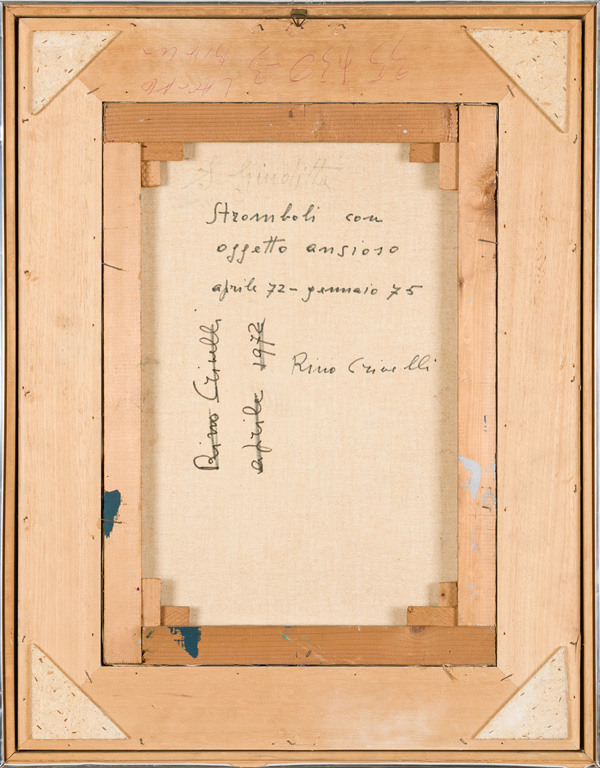 Stromboli con
oggetto ansioso
aprile 72 - gennaio 75
Rino Crivelli
Rino Crivelli
aprile 1972